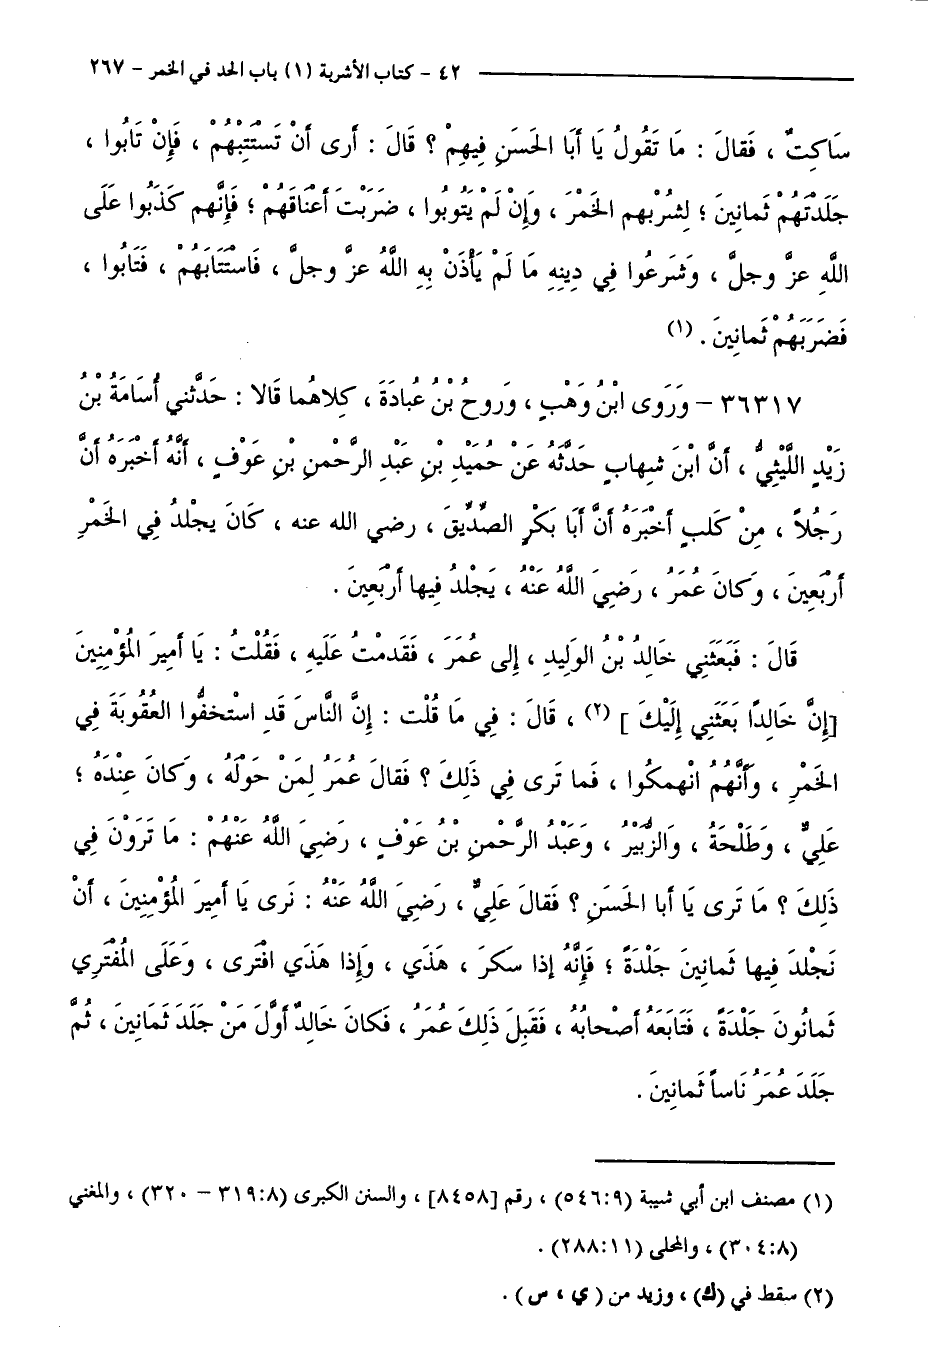 ٤٢ - كتاب الأشربة (١) باب الحد في الخمر - ٢٦٧
سَاكِتٌ ، فَقالَ : مَا تَقُولُ يَا أبَا الحَسَنِ فِيهِمْ ؟ قَالَ : أرى أنْ تَسْتَتِبْهُمْ ، فَإِنْ تَابُوا ،
جَلَدْتَهُمْ ثَمانِينَ ؛ لِشُرْبهم الخَمْرَ ، وَإِنْ لَمْ يَتُوبُوا ، ضَرَبْتَ أعْنَاقَهُمْ ؛ فَإِنَّهم كَذَبُوا عَلَى
اللَّهِ عزَّ وجلَّ ، وَشَرعُوا فِي دِينِهِ مَا لَمْ يَأْذَنْ بِهِ اللَّهُ عزَّ وجلَّ ، فَاسْتَتَابَهُمْ ، فَتَابُوا ،
فَضَرَبَهُمْ ثَمانِينَ . (١)
٣٦٣١٧ - وَرَوى ابْنُ وَهْبٍ ، وَروحُ بْنُ عُبادَةَ ، كلاهُما قَالا : حَدَّثني أُسَامَةُ بْنُ
زَيْدٍ اللَّيْثِيُّ ، أنَّ ابْنَ شِهابٍ حَدَّثَهُ عَنْ حُمَيْدِ بْنِ عَبْدِ الرَّحْمنِ بْنِ عَوْفٍ ، أنَّهُ أخبَرَه أنَّ
رَجُلاً ، مِنْ كَلبٍ أخْبَرَهُ أنَّ أبَا بَكْرٍ الصِّدِّيقَ ، رضي الله عنه ، كَانَ يجْلدُ فِي الخَمْرِ
أرْبَعِينَ ، وَكانَ عُمَرُ ، رَضِيَ اللَّهُ عَنْهُ ، يَجْلدُ فِيها أرْبَعِينَ .
قَالَ : فَبَعَثَنِي خَالِدُ بْنُ الوَلِيدِ ، إِلى عُمَرَ ، فَقَدمْتُ عَلَيهِ ، فَقُلْتُ : يَا أمِيرَ المُؤْمِنِينَ
[إِنَّ خَالِدًا بَعَثَنِي إِلَيْكَ ] (٢) ، قَالَ : فِي مَا قُلْت : إِنَّ النَّاسَ قَدِ اسْتخفُّوا العُقُوبَةَ فِي
الخَمْرِ ، وَأنَّهُمُ انْهمكُوا ، فَما تَرى فِي ذلِكَ ؟ فَقالَ عُمَرُ لِمَنْ حَوْلَهُ ، وَكانَ عِنْدَهُ ؛
عَلِيٌّ ، وَطَلْحَةُ ، وَالزُّبَيْرُ ، وَعَبْدُ الرَّحْمنِ بْنُ عَوْفٍ ، رَضِيَ اللَّهُ عَنْهُمْ : مَا تَرَوْنَ فِي
ذلِكَ ؟ مَا تَرى يَا أبا الحَسَنِ ؟ فَقالَ عَلِيٌّ ، رَضِيَ اللَّهُ عَنْهُ : نَرى يَا أمِيرَ المُؤْمِنِينَ ، أنْ
نَجْلدَ فِيها ثَمانِينَ جَلْدَةً ؛ فَإِنَّهُ إذا سَكرَ ، هَذَي ، وَإِذا هَذَي افْتَرى ، وَعَلَى المُفْتَرِي
ثَمانُونَ جَلْدَةً ، فَتَابَعَهُ أصْحابُهُ ، فَقَبِلَ ذَلِكَ عُمَرُ ، فَكانَ خَالِدٌ أوَّلَ مَنْ جَلَدَ ثَمَانِينَ ، ثُمَّ
جَلَدَ عُمَرُ نَاساً ثَمانِينَ .
(١) مصنف ابن أبي شيبة (٥٤٦:٩) ، رقم [٨٤٥٨] ، والسنن الكبرى (٣١٩:٨ - ٣٢٠) ، والمغني
(٣٠٤:٨) ، والمحلى (٢٨٨:١١) .
(٢) سقط في (ك) ، وزيد من ( ي ، س ) .